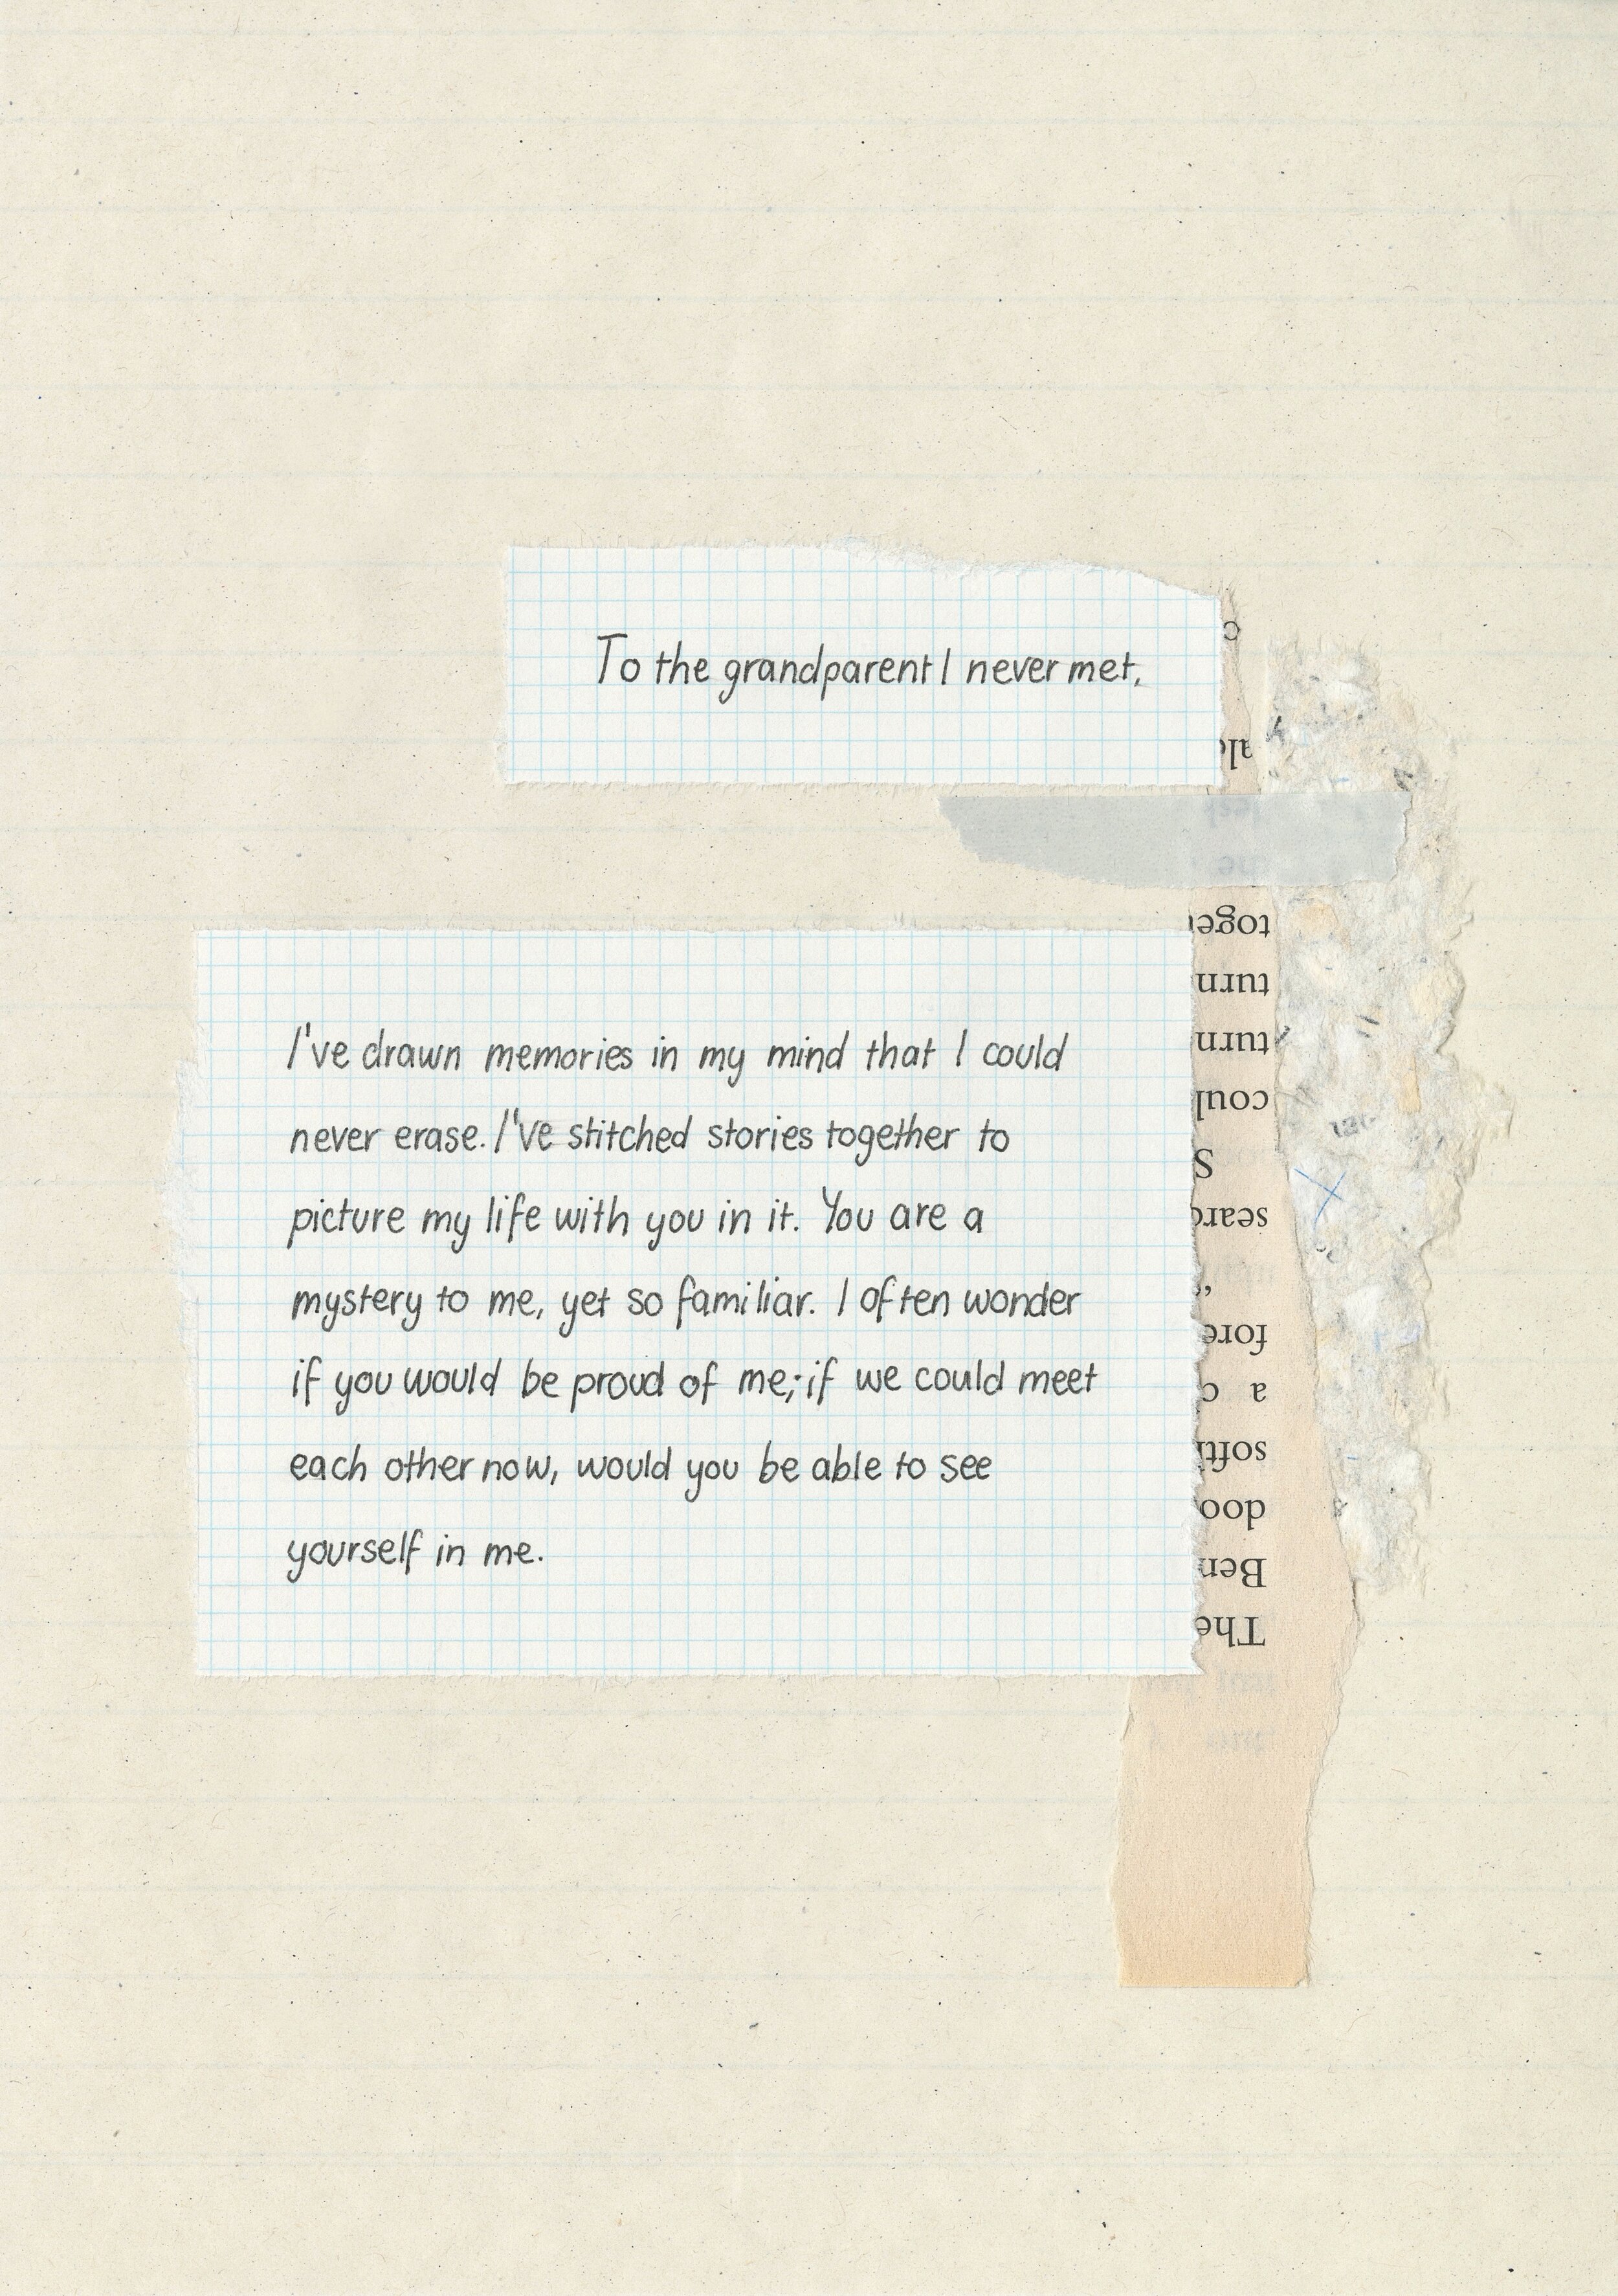 To the grandparent I never met,
I've drawn memories in my mind that I could
never erase. I've stitched stories together to
picture my life with you in it. You are a
mystery to me, yet so familiar. I often wonder
if you would be proud of me; if we could meet
each other now, would you be able to see
yourself in me.
The
Ben
doo
softl
a c
fore
"
searc
S
coul
turn
turn
toge